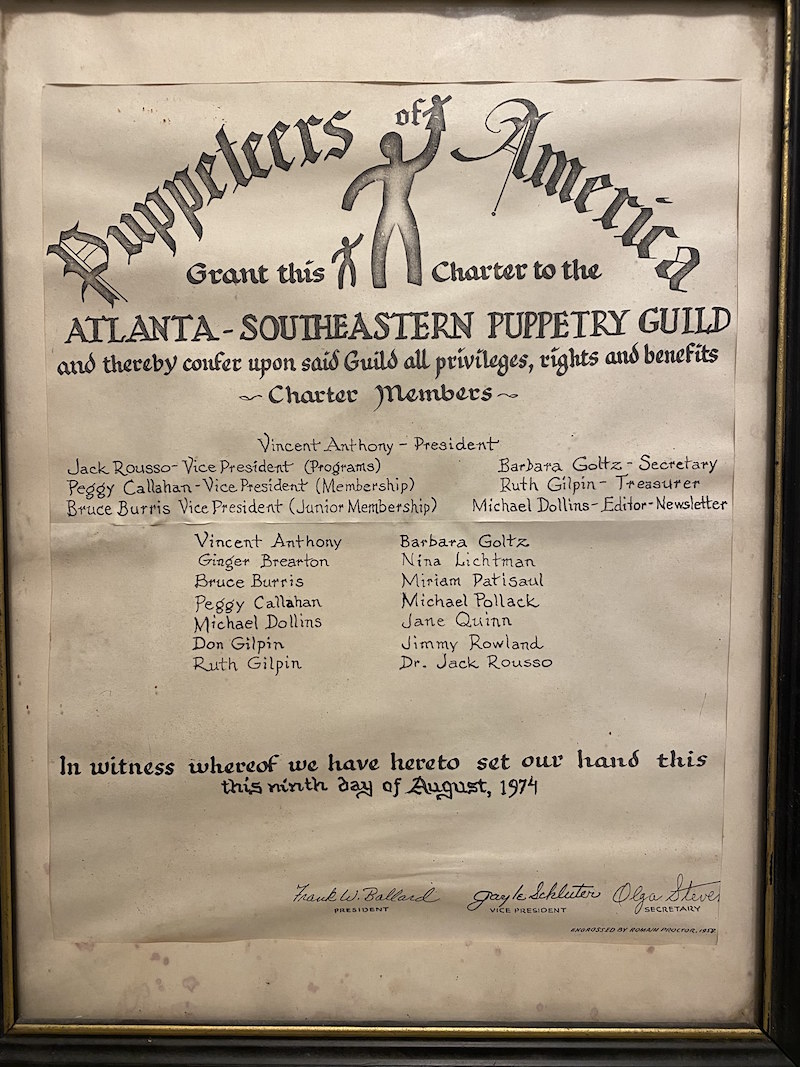 Puppeteers of America
Grant this Charter to the
ATLANTA - SOUTHEASTERN PUPPETRY GUILD
and thereby confer upon said Guild all privileges, rights and benefits
~ Charter Members ~
Vincent Anthony - President
Jack Rousso - Vice President (Programs) Barbara Goltz - Secretary
Peggy Callahan - Vice President (Membership) Ruth Gilpin - Treasurer
Bruce Burris Vice President (Junior Membership) Michael Dollins - Editor - Newsletter
Vincent Anthony Barbara Goltz
Ginger Brearton Nina Lichtman
Bruce Burris Miriam Patisaul
Peggy Callahan Michael Pollack
Michael Dollins Jane Quinn
Don Gilpin Jimmy Rowland
Ruth Gilpin Dr. Jack Rousso
In witness whereof we have hereto set our hand this
this ninth day of August, 1974
Frank W. Ballard Gayle Schluter Olga Steve
PRESIDENT VICE PRESIDENT SECRETARY
ENGROSSED BY ROMAIN PROCTOR, 1958